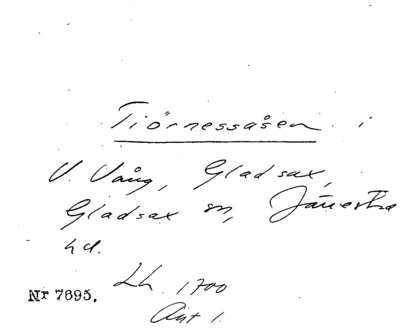 Tiörnessåsen i
V. Vång, Gladsax,
Gladsax sn, Järrestads
hd.
Lh. 1700
Akt 1.
Nr 7695.